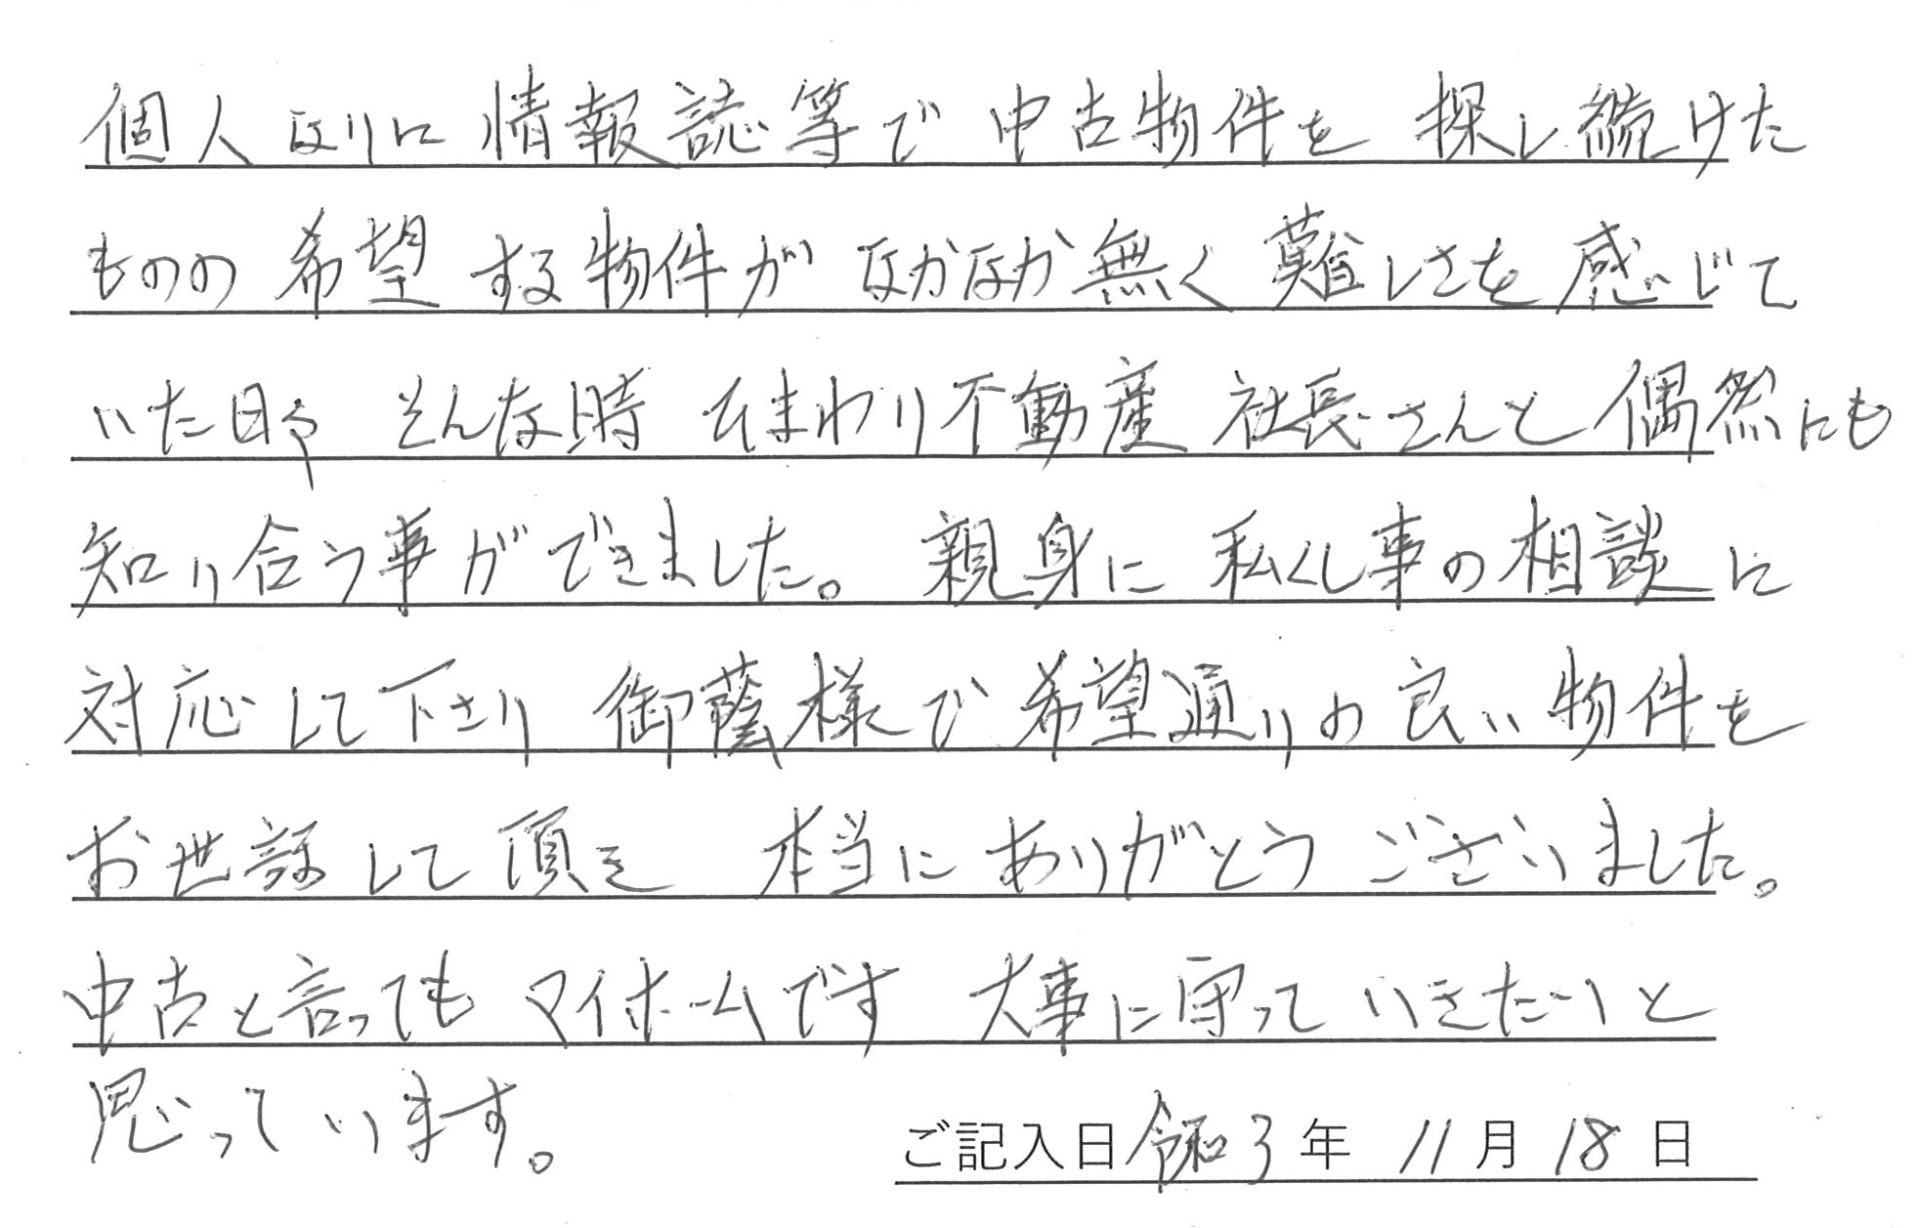 個人なりに情報誌等で中古物件を探し続けた
ものの希望する物件がなかなか無く難しさを感じて
いた日々 そんな時 ひまわり不動産 社長さんと偶然にも
知り合う事ができました。親身に私くし事の相談に
対応して下さり 御蔭様で希望通りの良い物件を
お世話して頂き 本当にありがとうございました。
中古と言ってもマイホームです 大事に守っていきたいと
思っています。
ご記入日 令和3年 11月18日